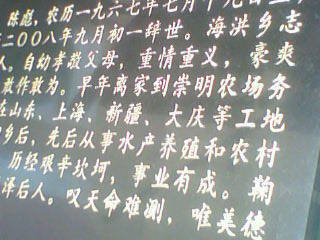 陈彪，农历一九六七年七月十九日
二〇〇八年九月初一辞世。海洪乡志
人，自幼孝敬父母，重情重义，豪爽
敢作敢为。早年离家到崇明农场务
在山东、上海、新疆、大庆等工地
乡后，先后从事水产养殖和农村
历经艰辛坎坷，事业有成。鞠
泽后人。叹天命难测，唯美德